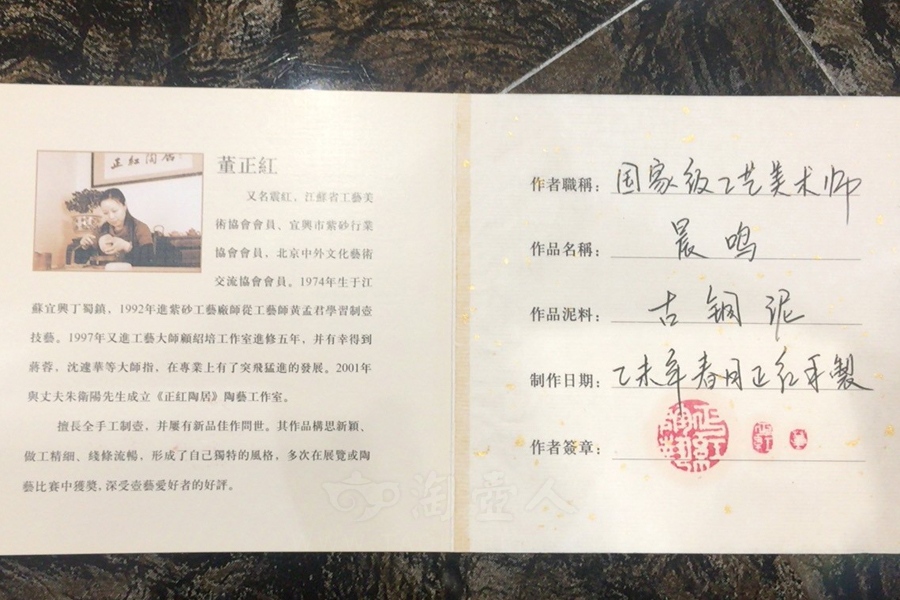 正紅陶居
董正紅
又名震紅，江蘇省工藝美
術協會會員、宜興市紫砂行業
協會會員，北京中外文化藝術
交流協會會員。1974年生于江
蘇宜興丁蜀鎮，1992年進紫砂工藝廠師從工藝師黃孟君學習制壺
技藝。1997年又進工藝大師顧紹培工作室進修五年，并有幸得到
蔣蓉，沈遽華等大師指，在專業上有了突飛猛進的發展。2001年
與丈夫朱衛陽先生成立《正紅陶居》陶藝工作室。
擅長全手工制壺，并屢有新品佳作問世。其作品構思新穎、
做工精細、綫條流暢，形成了自己獨特的風格，多次在展覽或陶
藝比賽中獲獎，深受壺藝愛好者的好評。
作者職稱：国家级工艺美术师
作品名稱：晨鸣
作品泥料：古铜泥
制作日期：乙未年春月正红手製
作者簽章：
正紅
淘壺人